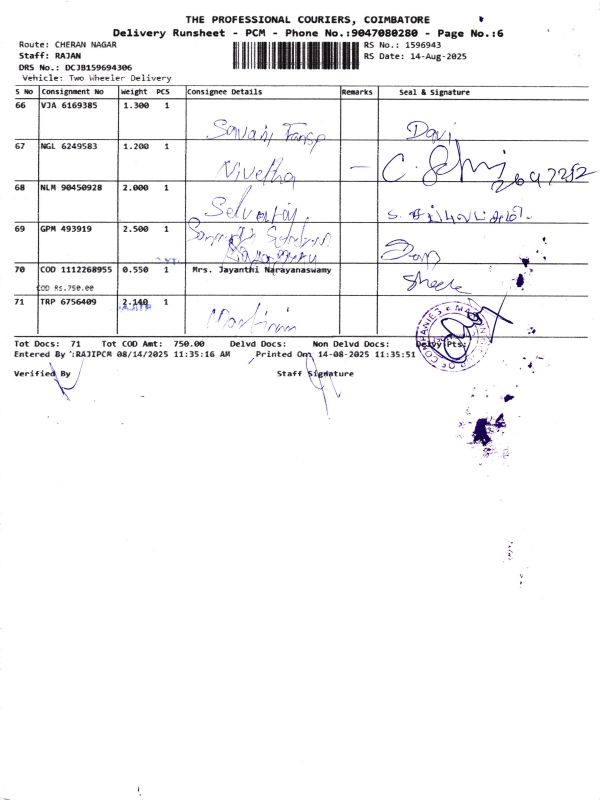 THE PROFESSIONAL COURIERS, COIMBATORE
Delivery Runsheet - PCM - Phone No.:9047080280 - Page No.:6
Route: CHERAN NAGAR RS No.: 1596943
Staff: RAJAN RS Date: 14-Aug-2025
DRS No.: DCJB159694306
Vehicle: Two Wheeler Delivery
S No Consignment No Weight PCS Consignee Details Remarks Seal & Signature
66 VJA 6169385 1.300 1
67 NGL 6249583 1.200 1 Nivetha —
68 NLM 90450928 2.000 1
69 GPM 493919 2.500 1
70 COD 1112268955 0.550 1 Mrs. Jayanthi Narayanaswamy
COD Rs.750.00
71 TRP 6756409 2.140 1
Tot Docs: 71 Tot COD Amt: 750.00 Delvd Docs: Non Delvd Docs: Delvy Pts:
Entered By :RAJIPCM 08/14/2025 11:35:16 AM Printed On: 14-08-2025 11:35:51
Verified By Staff Signature